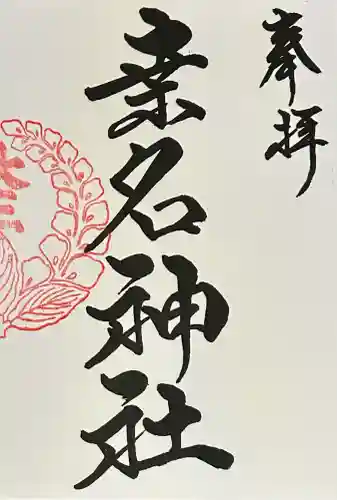 奉拝
桒名神社